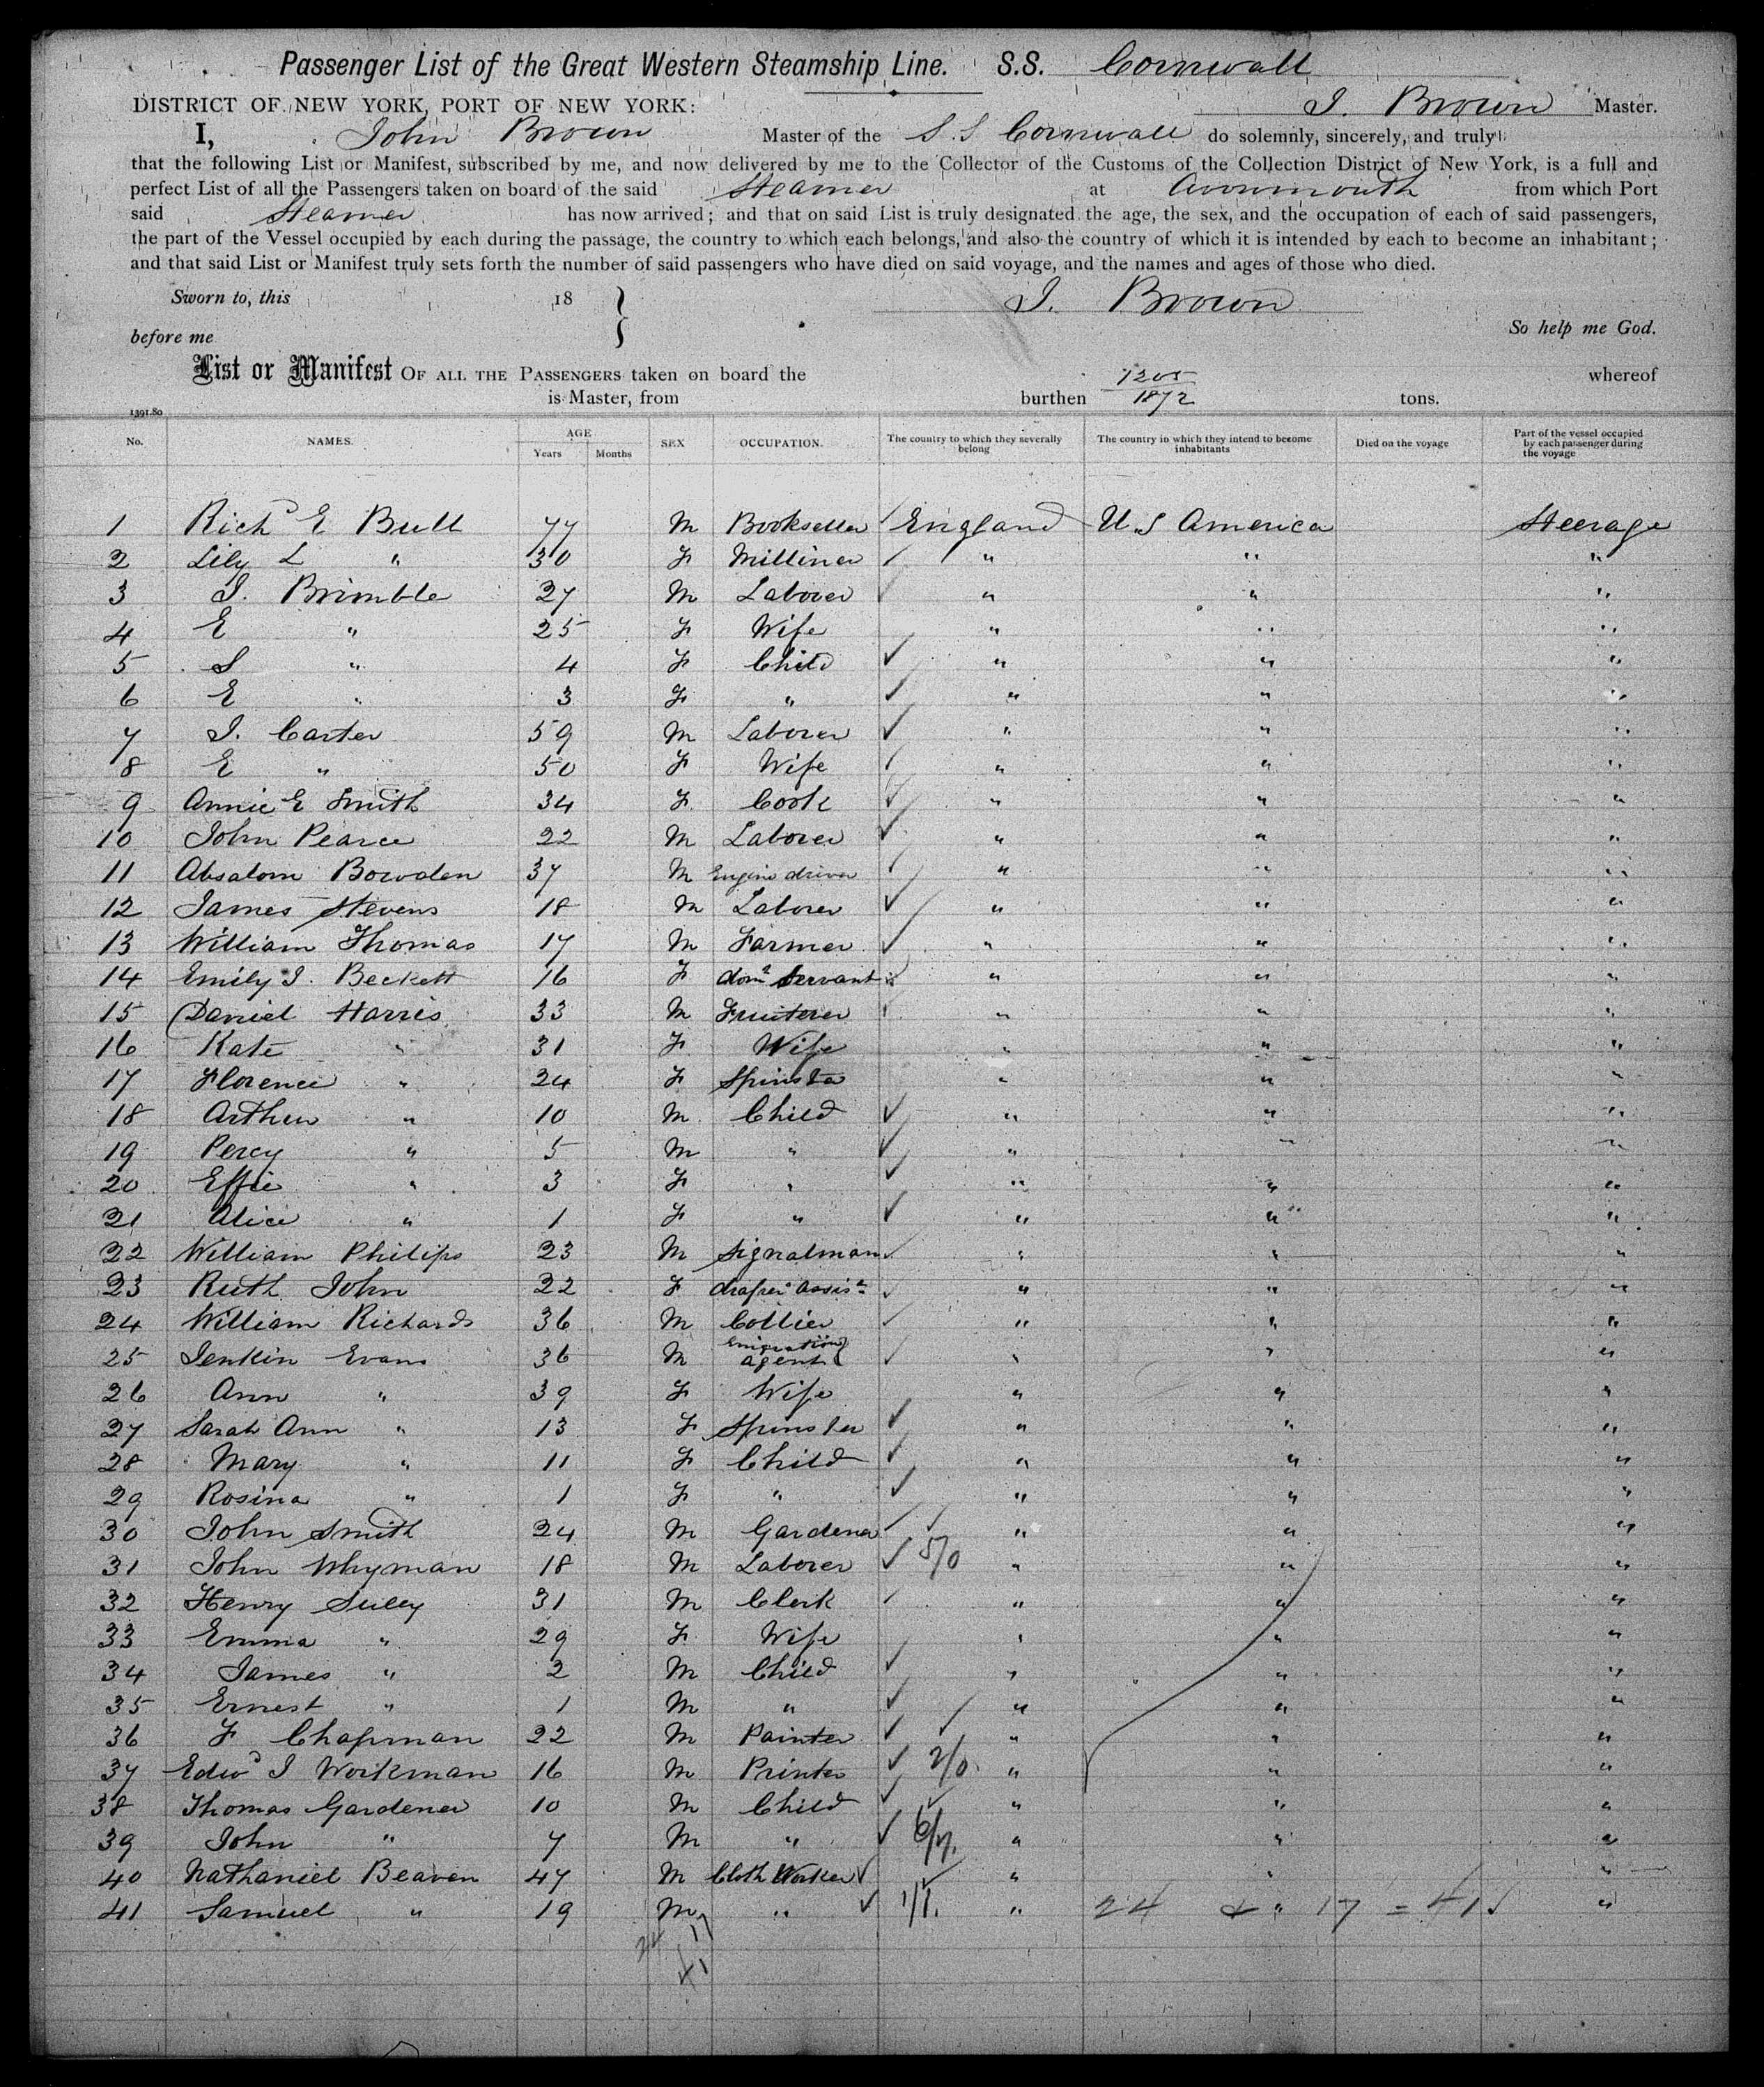 Passenger List of the Great Western Steamship Line. S.S. Cornwall
DISTRICT OF NEW YORK, PORT OF NEW YORK: J. Brown Master.
I, John Brown Master of the S.S Cornwall do solemnly, sincerely, and truly
that the following List or Manifest, subscribed by me, and now delivered by me to the Collector of the Customs of the Collection District of New York, is a full and
perfect List of all the Passengers taken on board of the said Steamer at Avonmouth from which Port
said Steamer has now arrived; and that on said List is truly designated the age, the sex, and the occupation of each of said passengers,
the part of the Vessel occupied by each during the passage, the country to which each belongs, and also the country of which it is intended by each to become an inhabitant;
and that said List or Manifest truly sets forth the number of said passengers who have died on said voyage, and the names and ages of those who died.
Sworn to, this 18 } J. Brown
before me So help me God.
List or Manifest OF ALL THE PASSENGERS taken on board the whereof
is Master, from burthen 1205/1872 tons.
1391.80
No. NAMES. AGE Years Months SEX OCCUPATION. The country to which they severally belong The country in which they intend to become inhabitants Died on the voyage Part of the vessel occupied by each passenger during the voyage
1 Richd E Bull 77 M Bookseller ✓ England U.S America Steerage
2 Lily L " 30 F Milliner ✓ " " "
3 J. Brimble 27 M Laborer ✓ " " "
4 E " 25 F Wife " " "
5 S " 4 F Child ✓ " " "
6 E " 3 F " ✓ " " "
7 J. Carter 59 M Laborer ✓ " " "
8 E " 50 F Wife ✓ " " "
9 Annie E Smith 34 F Cook ✓ " " "
10 John Pearce 22 M Laborer ✓ " " "
11 Absalom Bowden 37 M Engine driver ✓ " " "
12 James Stevens 18 M Laborer ✓ " " "
13 William Thomas 17 M Farmer ✓ " " "
14 Emily J. Beckett 16 F domc Servant ✓ " " "
15 Daniel Harris 33 M Fruiterer ✓ " " "
16 Kate " 31 F Wife " " "
17 Florence " 24 F Spinster " " "
18 Arthur " 10 M Child ✓ " " "
19 Percy " 5 M " ✓ " " "
20 Effie " 3 F " ✓ " " "
21 Alice " 1 F " ✓ " " "
22 William Philips 23 M Signalman ✓ " " "
23 Ruth John 22 F drapers assist ✓ " " "
24 William Richards 36 M Collier ✓ " " "
25 Jenkin Evans 36 M Emigration agent ✓ " " "
26 Ann " 39 F Wife " " "
27 Sarah Ann " 13 F Spinster ✓ " " "
28 Mary " 11 F Child ✓ " " "
29 Rosina " 1 F " ✓ " " "
30 John Smith 24 M Gardener ✓ ✓ " " "
31 John Whyman 18 M Laborer ✓ 5/0 " " "
32 Henry Sulley 31 M Clerk ✓ " " "
33 Emma " 29 F Wife " " "
34 James " 2 M Child ✓ " " "
35 Ernest " 1 M " ✓ ✓ " " "
36 F Chapman 22 M Painter ✓ ✓ " " "
37 Edwd J Workman 16 M Printer ✓ 2/0 " " "
38 Thomas Gardener 10 M Child ✓ ✓ " " "
39 John " 7 M " ✓ " " "
40 Nathaniel Beaven 47 M Cloth Worker ✓ ✓ " " "
41 Samuel " 19 M " ✓ 1/1. " 24 & " 17 = 41 ✓ "
24 17
41